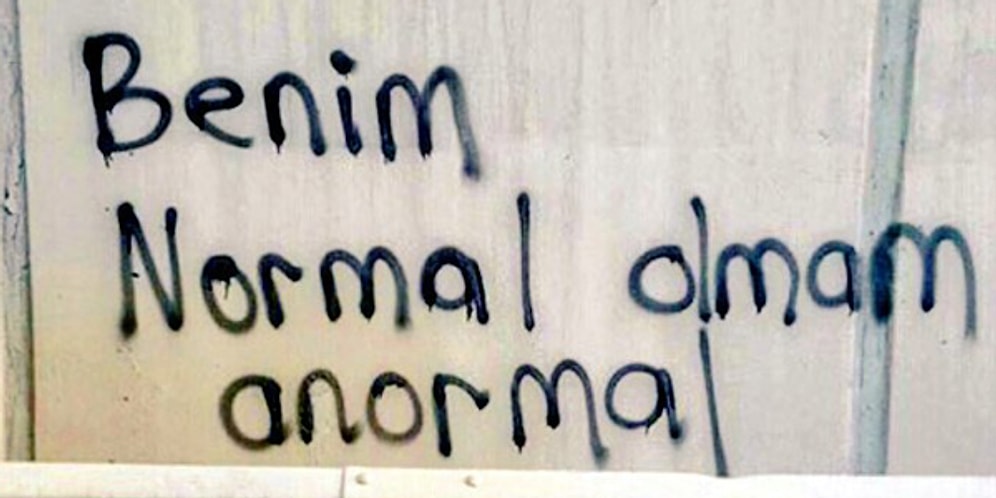 Benim
Normal olmam
anormal